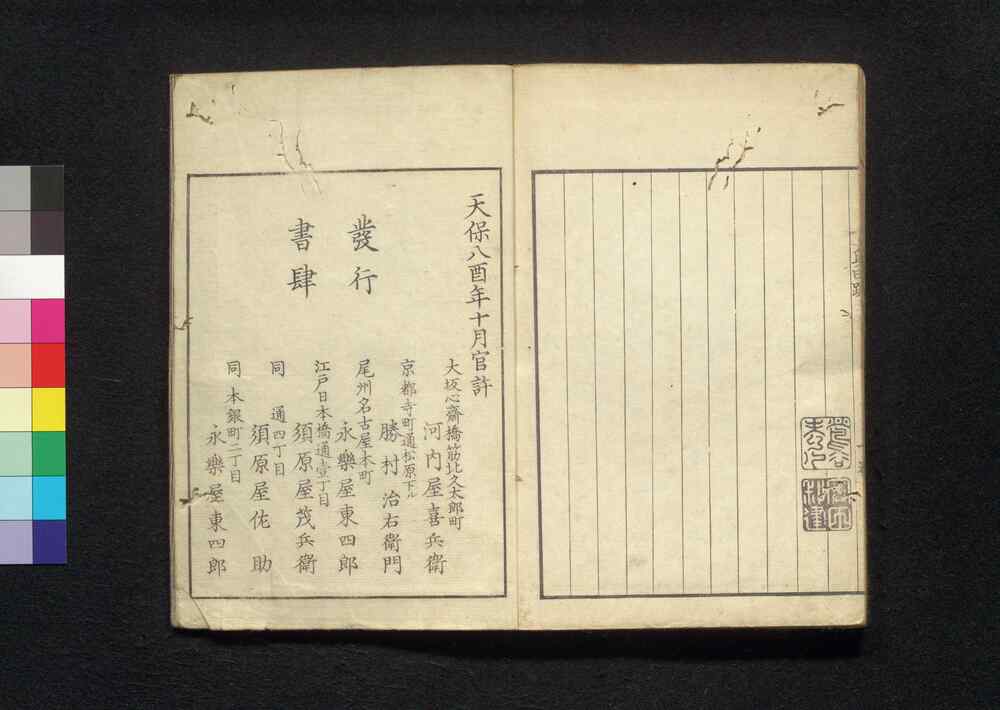 天保八酉年十月官許
發行
書肆
大坂心齋橋筋北久太郎町
河内屋喜兵衛
京都寺町通松原下ル
勝村治右衛門
尾州名古屋本町
永樂屋東四郎
江戸日本橋通壹丁目
須原屋茂兵衛
同 通四丁目
須原屋佐助
同 本銀町二丁目
永樂屋東四郎